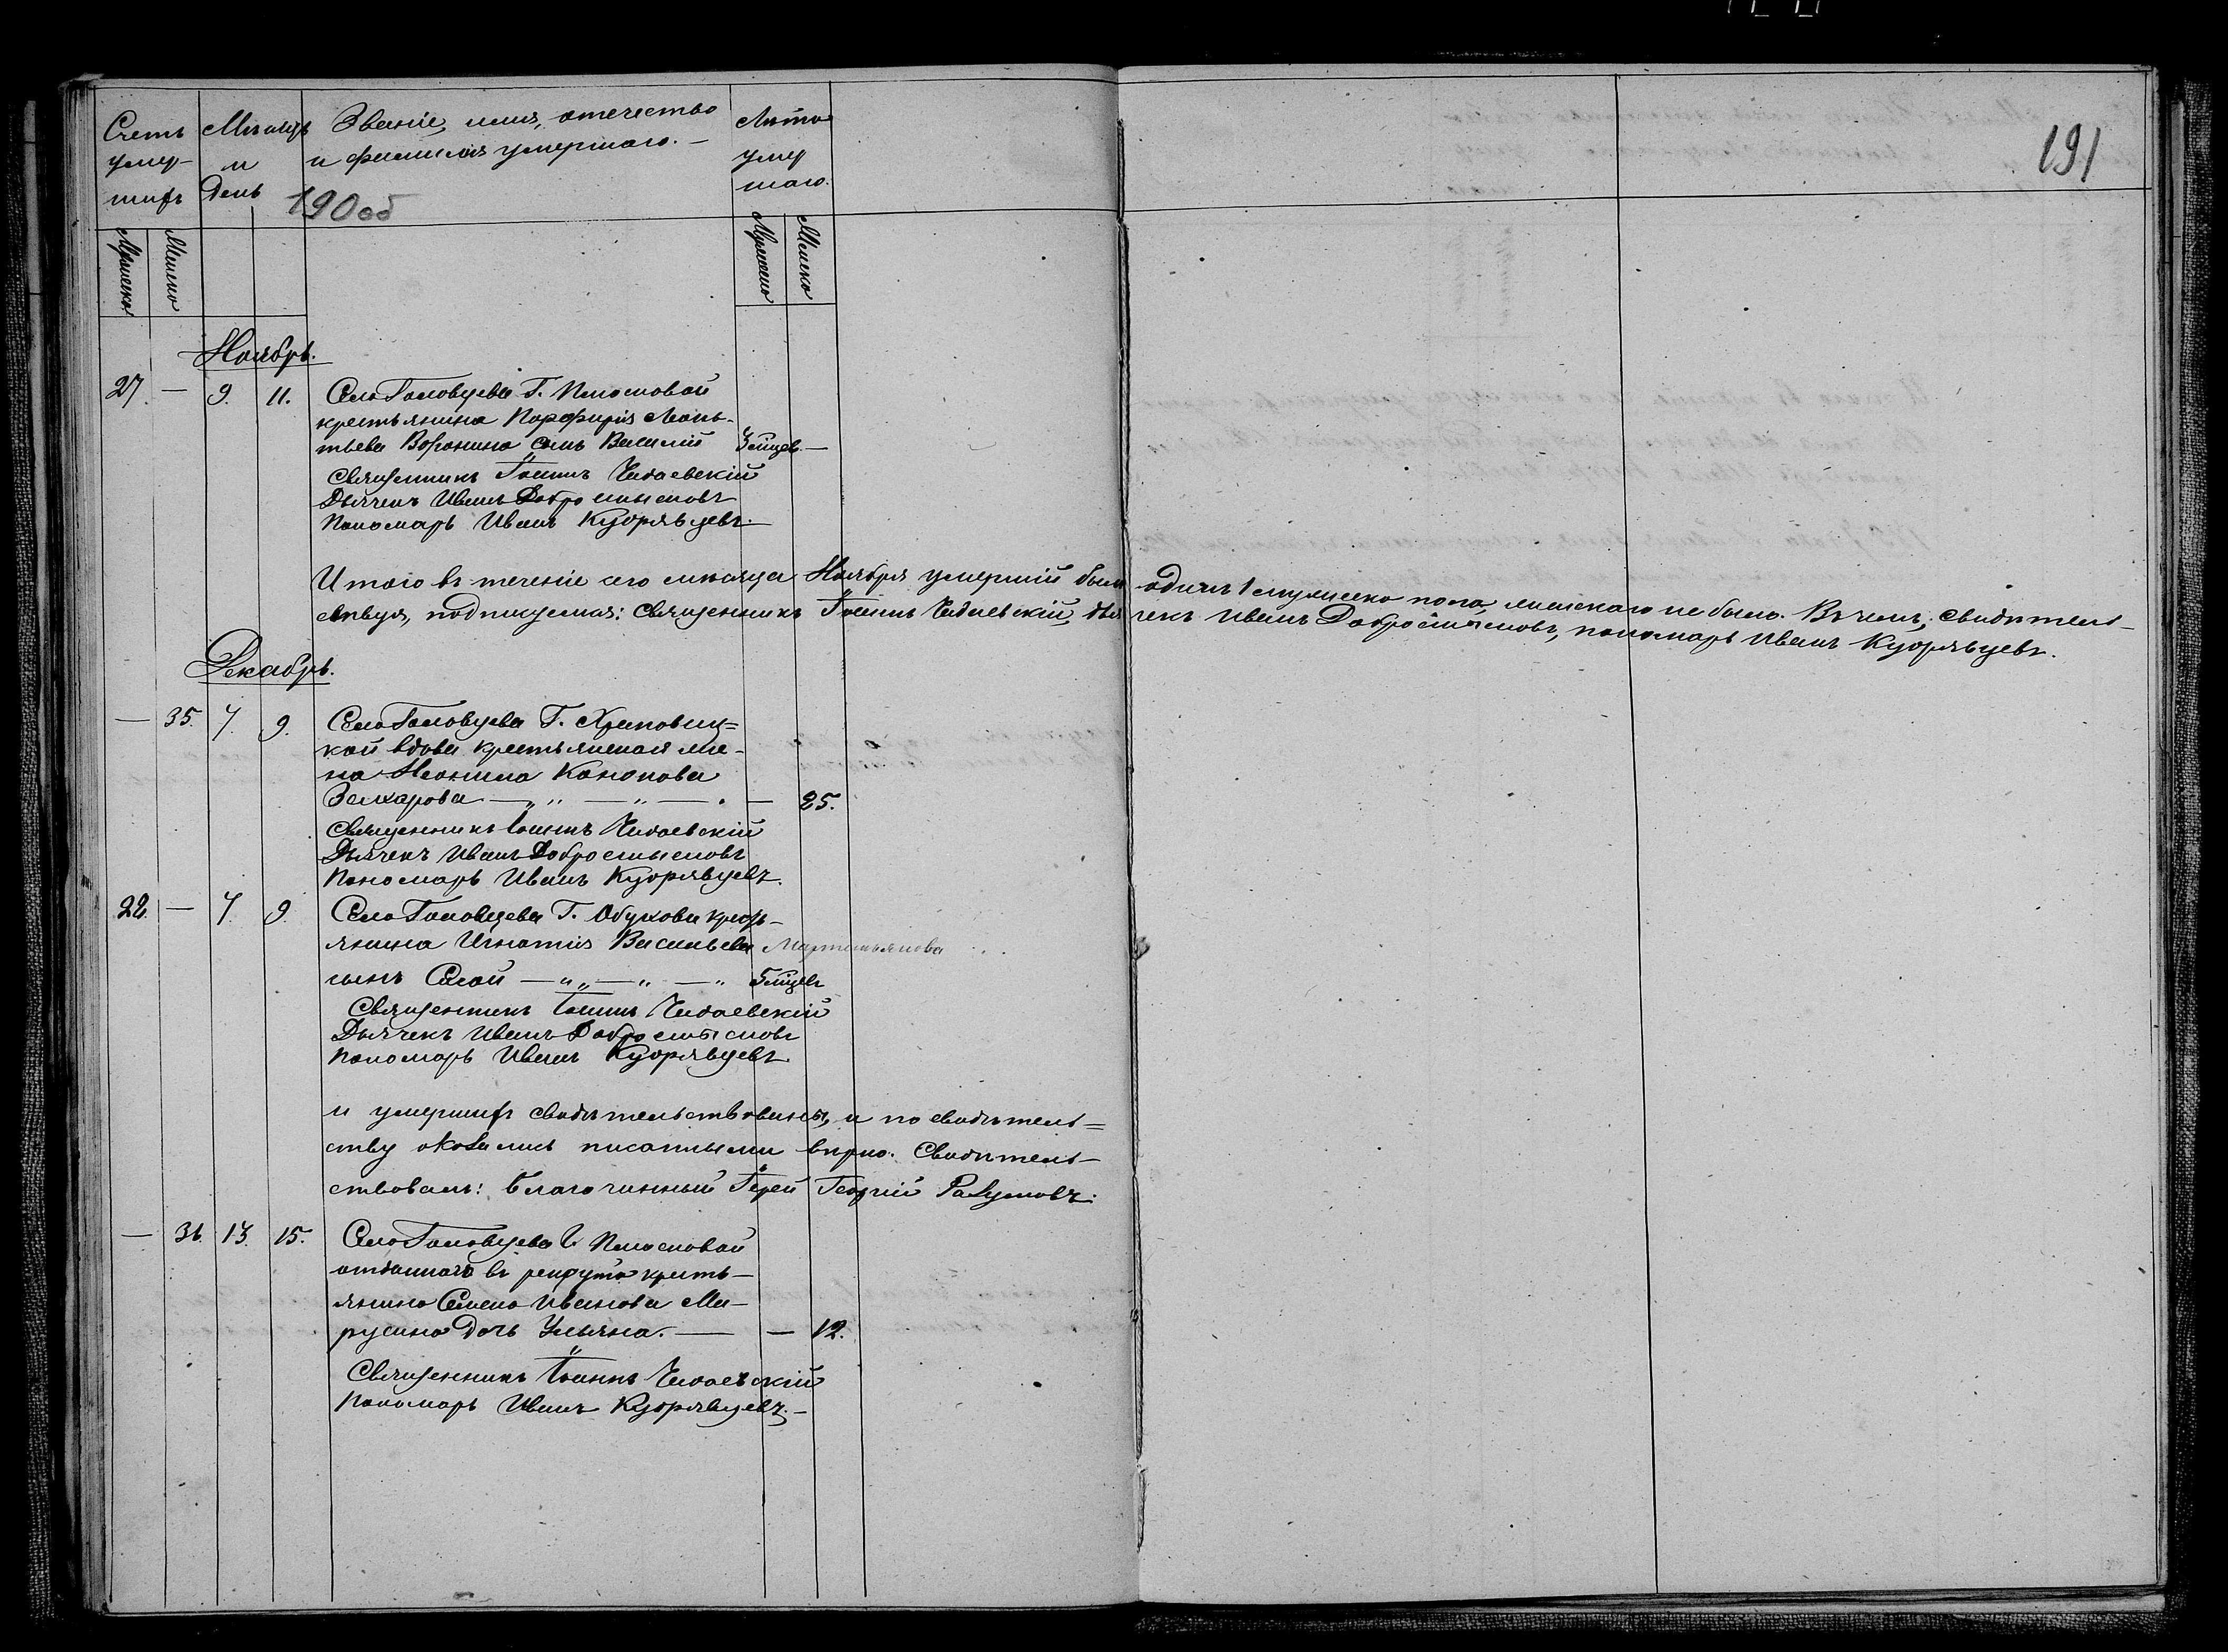 191
Счетъ умер-шихъ
Мѣсяцъ и День
Званіе, имя, отечество
и фамилія умершаго. —
Лѣта умер шаго.
190об
Мужеска
Женска
Мужеска
Женска
Ноябрь.
27. — 9. 11. Села Головцева Г.
крестьянина Порфирія Леонь-
тьева Воронина сынъ Василій 3 мѣцев. —
Священникъ Іоаннъ Чидаевскій
Дьячекъ Иванъ Добросмысловъ
Пономарь Иванъ Кудрявцевъ.
Итого въ теченіе сего мѣсяца Ноября умершій былъ одинъ 1 мужеска пола, женскаго не было. Въ чемъ, свидѣтель-
ствуя, подписуемся: Священникъ Іоаннъ Чидаевскій, дьячекъ Иванъ Добросмысловъ, пономарь Иванъ Кудрявцевъ.
Декабрь.
— 35. 7. 9. Села Головцева Г. Храповиц=
кой вдова крестьянская же-
на Неонила Конопова
Захарова — „ — „ — . — 85.
Священникъ Іоаннъ Чидаевскій
Дьячекъ Иванъ Добросмысловъ
Пономарь Иванъ Кудрявцевъ.
22. — 7. 9. Села Головцева Г. Обухова крестъ-
янина Игнатія Васильева Мартемьянова
сынъ Сысой — „ „ — „ — „ 5 мѣцевъ
Священникъ Іоаннъ Чидаевскій
Дьячекъ Иванъ Добросмысловъ
Пономарь Иванъ Кудрявцевъ.
и умершихъ свидѣтельствованы, и по свидѣтель=
ству оказались писанными вѣрно. Свидѣтель-
ствовалъ: Благочинный Іерей Георгій Разумовъ.
— 36. 13. 15. Села Головцева Г.
отданнаго въ рекруты кресть-
янина Семена Иванова Ма-
русина дочь Ульяна. — — 12.
Священникъ Іоаннъ Чидаевскій
Пономарь Иванъ Кудрявцевъ. —